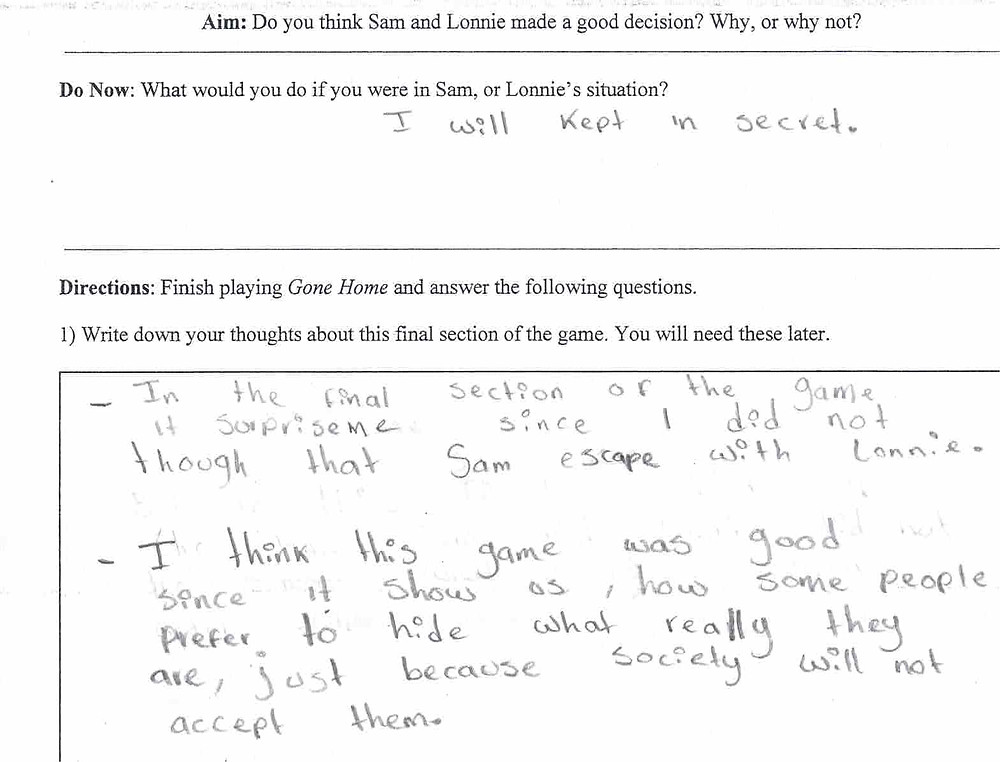 Aim: Do you think Sam and Lonnie made a good decision? Why, or why not?
Do Now: What would you do if you were in Sam, or Lonnie's situation?
I will kept in secret.
Directions: Finish playing Gone Home and answer the following questions.
1) Write down your thoughts about this final section of the game. You will need these later.
– In the final section of the game
it surpriseme since I did not
though that Sam escape with Lonnie.
– I think this game was good
since it show os, how some people
prefer to hide what really they
are, just because society will not
accept them.